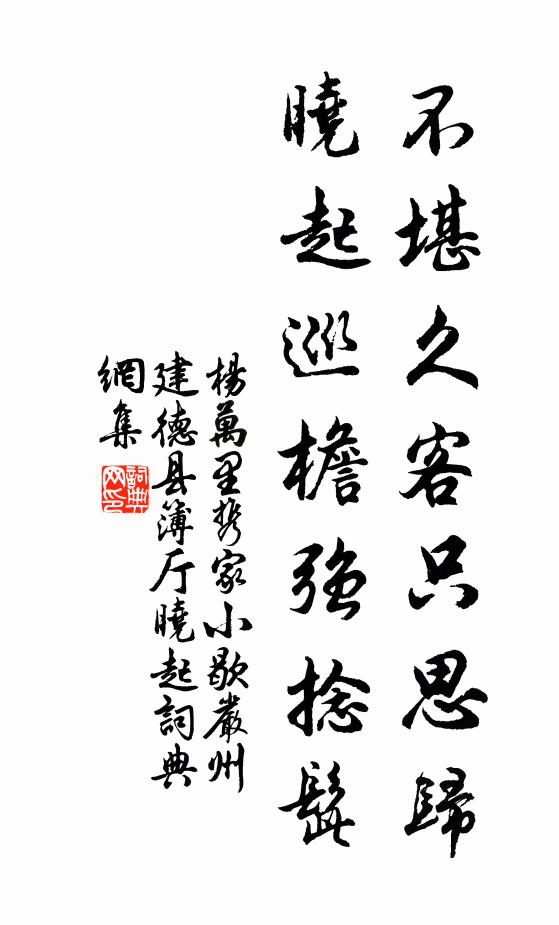 不堪久客只思歸
曉起巡檐強捻髭
楊萬里携家小歇嚴州
建德县簿厅曉起詞典
網集
詞典
网印